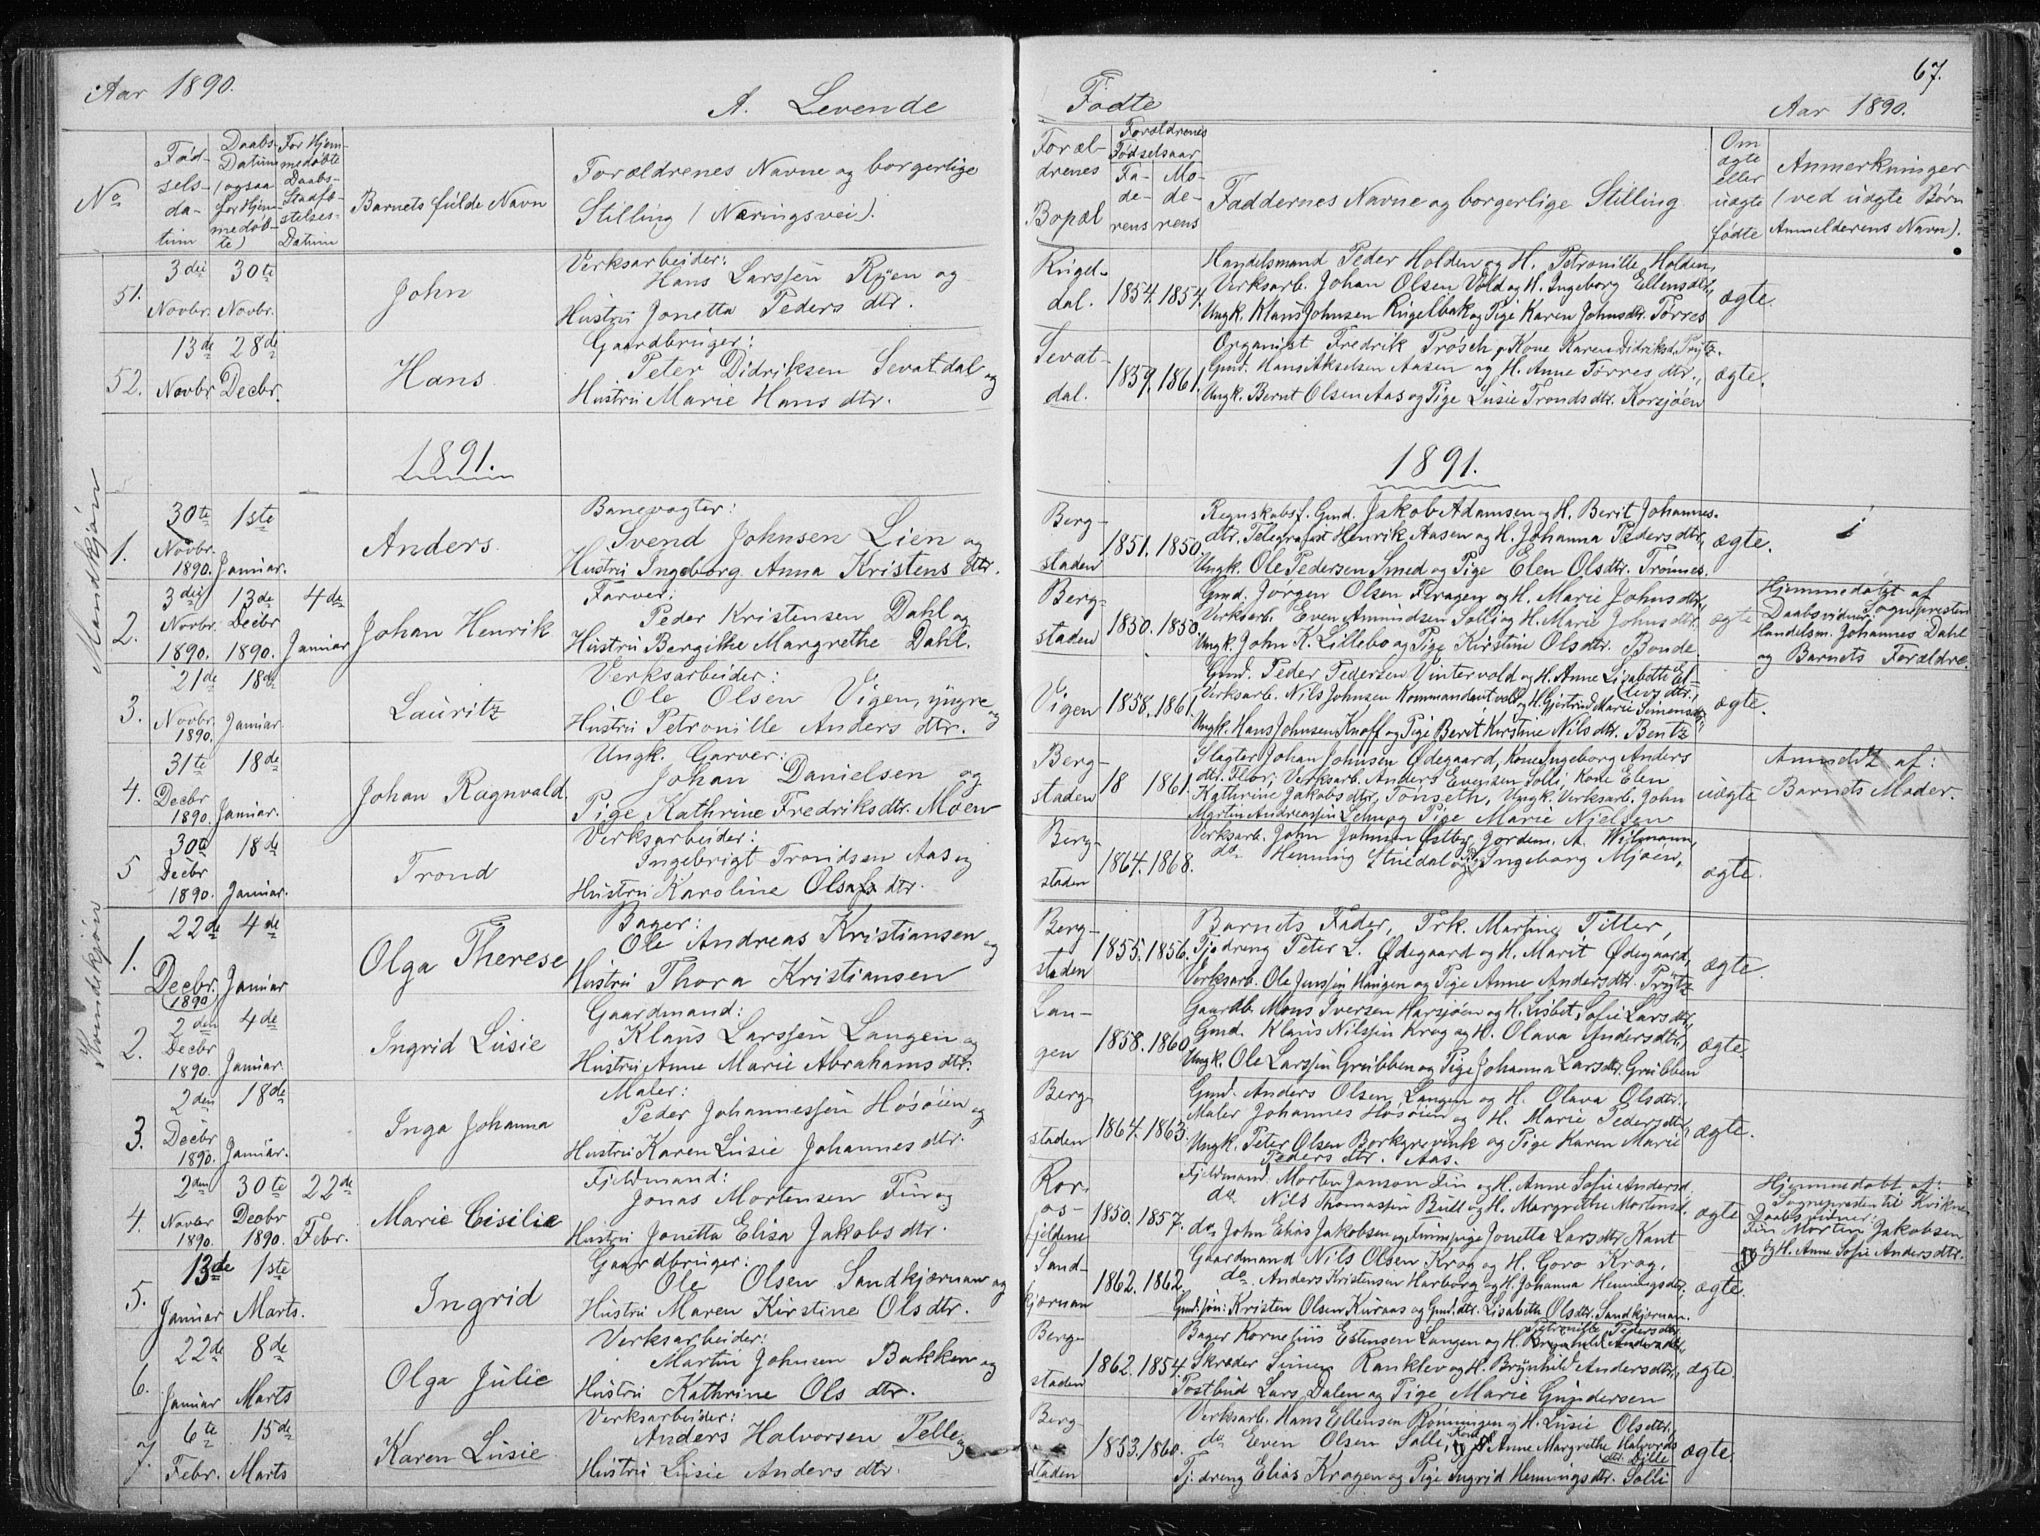 Aar 1890.
A. Levende
Fødte
67.
Aar 1890.
No
Fød-
sels-
da-
tum
Daabs-
Datum
(ogsaa
for Hjem-
medøb-
te)
For Hjem-
medøbte
Daabs-
Stadfæ-
stelses-
Datum
Barnets fulde Navn
Forældrenes Navne og borgerlige
Stilling (Næringsvei).
Foræl-
drenes
Bopæl
Forældrenes
Fødselsaar
Fa-
de-
rens
Mo-
de-
rens
Faddernes Navne og borgerlige Stilling
Om
ægte
eller
uægte
fødte
Anmerkninger
(ved uægte Børn
Anmelderens Navn).
Mandkjøn
51.
3die
Novbr.
30te
Novbr.
John
Verksarbeider:
Hans Larssen Ryen og
Hustru Jonetta Peders dtr.
Rugel-
dal.
1854. 1854.
Handelsmand Peder Holden og H. Petronille Holden,
Verksarb. Johan Olsen Vold og H. Ingeborg Ellensdtr.,
Ungk. Klaus Johnsen Rugelbak og Pige Karen Johnsdtr. Tørres
ægte.
52.
13de
Novbr
28de
Decbr.
Hans
Gaardbruger:
Peter Didriksen Sevatdal og
Hustru Marie Hans dtr.
Sevat-
dal.
1859. 1861.
Organist Fredrik Trøsch, Kone Karen Didriksd. Prytz.
Gmd. Hans Akselsen Aasen og H. Anne Tørres dtr.,
Ungk. Bernt Olsen Aas og Pige Lusie Tronds dtr. Korsjøen
ægte.
1891.
1891.
1.
30te
Novbr.
1890.
1ste
Januar.
Anders.
Banevogter:
Svend Johnsen Lien og
Hustru Ingeborg Anna Kristens dtr.
Berg-
staden
1851. 1850.
Regnskabsf. Gmd. Jakob Adamsen og H. Berit Johannes-
dtr. Telegrafist Henrik Aasen og H. Johanna Pedersdtr.,
Ungk. Ole Pedersen Smed og Pige Elen Olsdtr. Trønnes.
ægte.
2.
3die
Novbr.
1890.
13de
Decbr
1890.
4de
Januar
Johan Henrik
Farver:
Peder Kristensen Dahl og
Hustru Bergithe Margrethe Dahl.
Berg-
staden
1850. 1850.
Gmd. Jørgen Olsen Feragen og H. Marie Johns dtr.,
Verksarb. Even Amundsen Solli og H. Marie Johns dtr.,
Ungk. John K. Lillebo og Pige Kirstine Olsdtr. Bonde.
ægte
Hjemmedøbt af
Sognepresten
Daabsvidner:
Handelsm. Johannes Dahl
og Barnets Forældre.
3.
21de
Novbr.
1890.
18de
Januar.
Lauritz
Verksarbeider:
Ole Olsen Vigen, yngre og
Hustru Petronille Anders dtr.
Vigen
1858. 1861.
Gmd. Peder Pedersen Vintervold og H. Anne Lisabeth El-
levs dtr.,
Verksarb. Nils Johnsen Kommandantvold og H. Gjertrud Marie Simensdtr.,
Ungk. Hans Johnsen Knoff og Pige Berit Kirstine Nilsdtr. Bentz
ægte.
4.
31te
Decbr
1890.
18de
Januar.
Johan Ragnvald.
Ungk. Garver:
Johan Danielsen og
Pige Kathrine Fredriksdtr. Moen
Berg-
staden
18 1861.
Slagter Johan Johnsen Ødegaard, Kone Ingeborg Anders
dtr. Flor, Verksarb. Anders Evensen Solli, Kone Elen
Kathrine Jakobsdtr. Tønseth, Ungk. Verksarb. John
Martin Andreassen og Pige Marie Nielsen
uægte
Anmeldt af:
Barnets Moder.
5
30te
Decbr
1890.
18de
Januar.
Trond
Verksarbeider:
Ingebrigt Trondsen Aas og
Hustru Karoline Olsdtr.
Berg-
staden
1864. 1868.
Verksarb. John Johnsen Østby, Jordem. A. Wigmann,
do. Henning Studal og Ingeborg Mjøen,
ægte.
Kvindekjøn
1.
22de
Decbr.
(1890)
4de
Januar
Olga Therese
Bager:
Ole Andreas Kristiansen og
Hustru Thora Kristiansen
Berg-
staden
1855. 1856.
Barnets Fader, Frk. Martine Tiller,
Tjdreng Peter L. Ødegaard og H. Marit Ødegaard,
Verksarb. Ole Jenssen Haugen og Pige Anne Andersdtr. Prytz
ægte.
2.
2den
Decbr
1890.
4de
Januar.
Ingrid Lusie
Gaardmand:
Klaus Larssen Langen og
Hustru Anne Marie Abrahams dtr.
Lan-
gen
1858. 1860.
Gaardb. Mons Iversen Harsjøen og H. Lisbet Sofie Larsdtr.,
Gmd. Klaus Nilssen Krog og H. Olava Andersdtr.,
Ungk. Ole Larssen Grubben og Pige Johanna Larsdtr. Grubben
ægte.
3.
2den
Decbr
1890.
18de
Januar.
Inga Johanna
Maler:
Peder Johannessen Hosøien og
Hustru Karen Lusie Johannes dtr.
Berg-
staden
1864. 1863.
Gmd. Anders Olsen Langen og H. Olava Olsdtr.,
Maler Johannes Hosøien og H. Marie Pedersdtr.,
Ungk. Peter Olsen Borkgrevink og Pige Karen Marie
Peders dtr. Aas.
ægte.
4.
2den
Novbr
1890.
30te
Decbr
1890.
22de
Febr.
Marie Cisilie
Fjeldmand:
Jonas Mortensen Fin og
Hustru Jonetta Elisa Jakobs dtr.
Rør-
os-
fjeldene
1850. 1857.
Fjeldmand. Morten Jonsen Fin og H. Anne Sofie Andersd.
do. Nils Thomassen Bull og H. Margrethe Mortensd.
do. John Elias Jakobsen og Finnepige Jonetta Larsdtr. Kant
ægte
Hjemmedøbt af:
Sognepresten til Kvikne
Daabsvidner:
Fin Morten Jakobsen
og H. Anne Sofie Andersdtr.
5.
13de
Januar
1ste
Marts.
Ingrid
Gaardbruger:
Ole Olsen Sandkjærnan og
Hustru Maren Kirstine Olsdtr.
Sand-
kjærnan
1862. 1862.
Gaardmand Nils Olsen Krog og H. Goro Krog,
do. Anders Kristensen Harborg og H. Johanna Henningsdtr.,
Gmd.søn: Kristen Olsen Kuraas og Gmd.dtr. Lisabeth Olsdtr. Sandkjærnan.
ægte.
6.
22de
Januar
8de
Marts
Olga Julie
Verksarbeider:
Martin Johnsen Bakken og
Hustru Kathrine Ols dtr.
Berg-
staden
1862. 1854.
Petronille Pedersdtr.
Bager Kornelius Estensen Langen og H.
Skræder Simen Ranklev og H. Brynhild Andersdtr.,
Postbud Lars Dalen og Pige Marie Gundersen
ægte.
7.
6te
Febr.
15de
Marts
Karen Lusie
Verksarbeider:
Anders Halvorsen Pelle og
Hustru Lusie Anders dtr.
Berg-
staden
1853. 1860.
Verksarb. Hans Ellensen Rønningen og H. Lusie Olsdtr.,
do. Even Olsen Solli, Kone Anne Margrethe Halvors
dtr. Dille
Tj.dreng Elias Kragen og Pige Ingrid Henningsdtr. Solli
ægte.